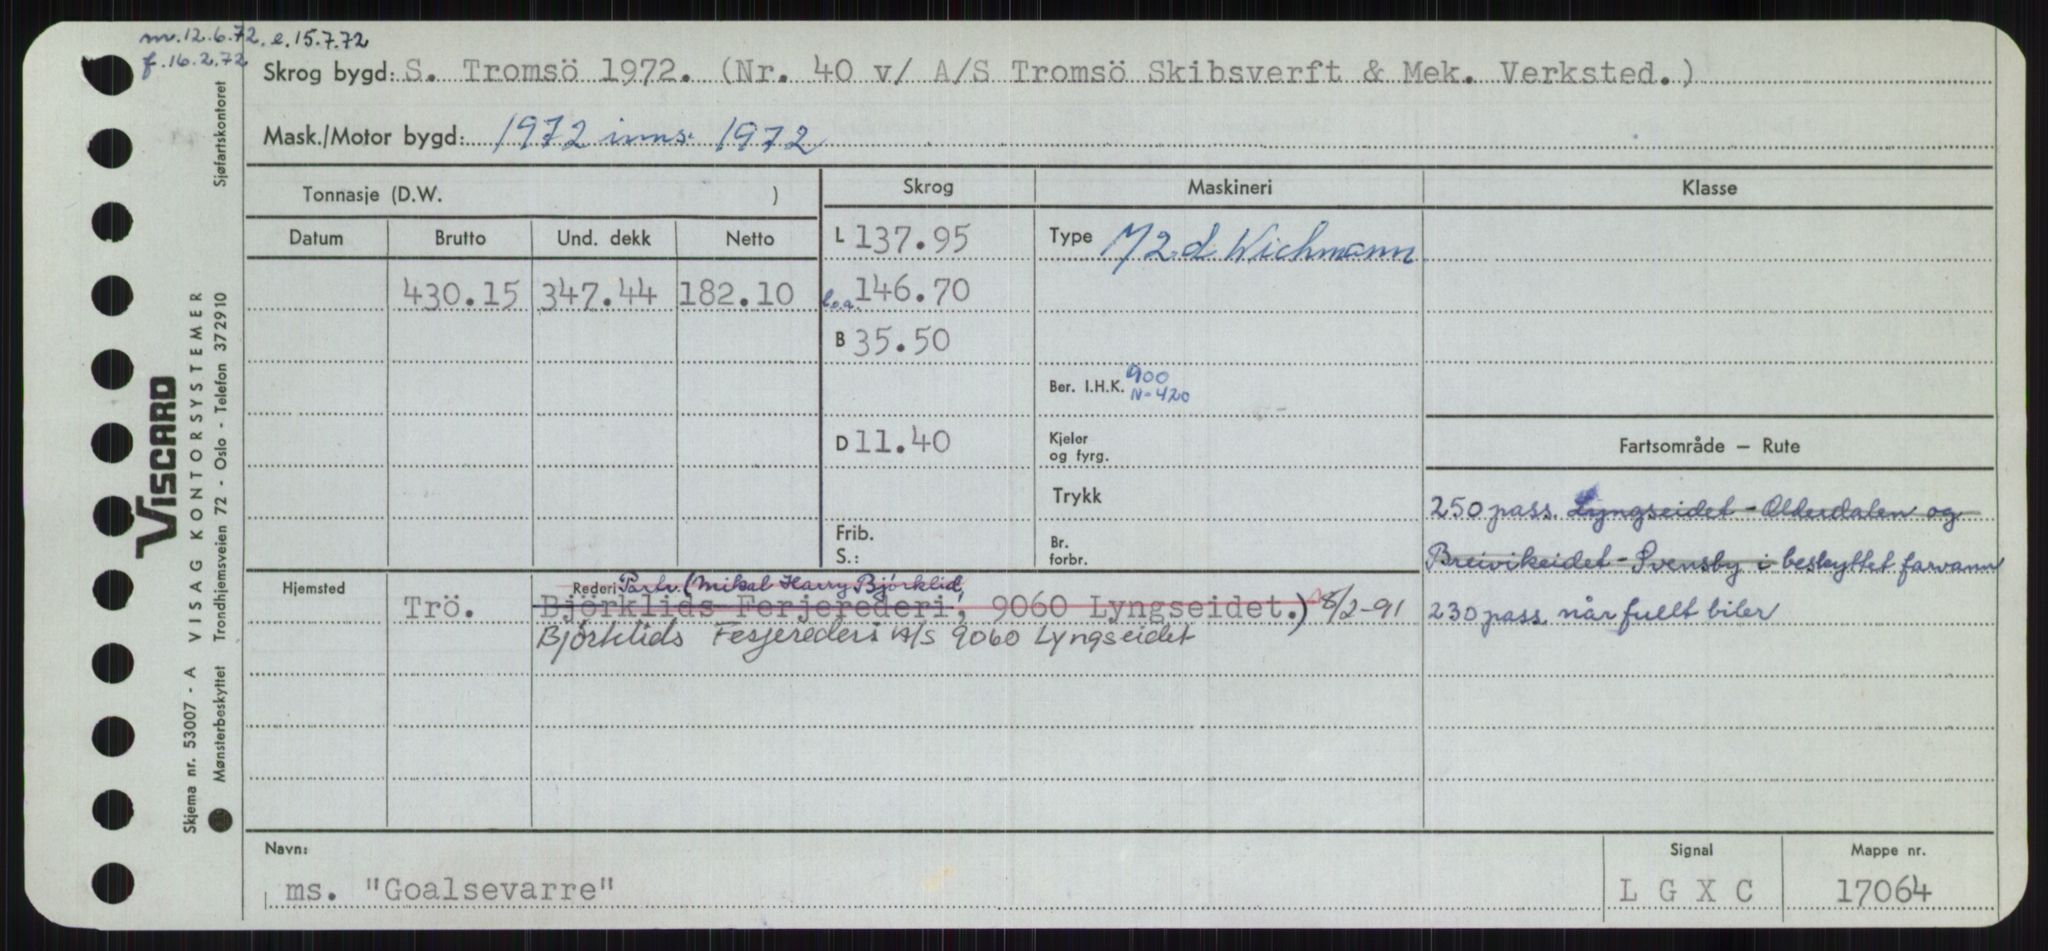 m.12.6.72, e.15.7.72
f.16.2.72
Skrog bygd: S. Tromsö 1972. (Nr. 40 v/ A/S Tromsö Skibsverft & Mek. Verksted.)
Mask./Motor bygd: 1972 inns. 1972
Tonnasje (D.W. )
Skrog
Maskineri
Klasse
Datum Brutto Und. dekk Netto
L 137.95
Type M2.d. Wichmann
430.15 347.44 182.10
l.o.a. 146.70
B 35.50
Ber. I.H.K. 900
N-420
D 11.40
Kjeler
og fyrg.
Fartsområde — Rute
Trykk
250 pass. Lyngseidet - Olderdalen og
Frib.
S.:
Br.
forbr.
Breivikeidet - Svensby i beskyttet farvann
230 pass når fullt biler
Hjemsted
Trö.
Rederi Partr. (Mikal Harry Bjørklid,
Björklids Ferjerederi, 9060 Lyngseidet.) 8/2-91
Bjørklids Ferjerederi A/S 9060 Lyngseidet
Navn:
ms. "Goalsevarre"
Signal
L G X C
Mappe nr.
17064
VISCARD
Skjema nr. 53007 - A VISAG KONTORSYSTEMER
Mønsterbeskyttet Trondhjemsveien 72 - Oslo - Telefon 372910 Sjøfartskontoret